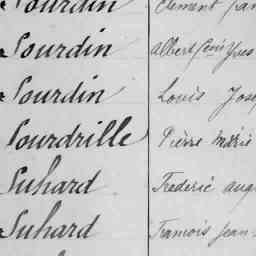 Sourdin Clément
Sourdin Albert Yves
Sourdin Louis
Sourdrille Pierre Marie
Suhard Frederic
Suhard Francois Jean